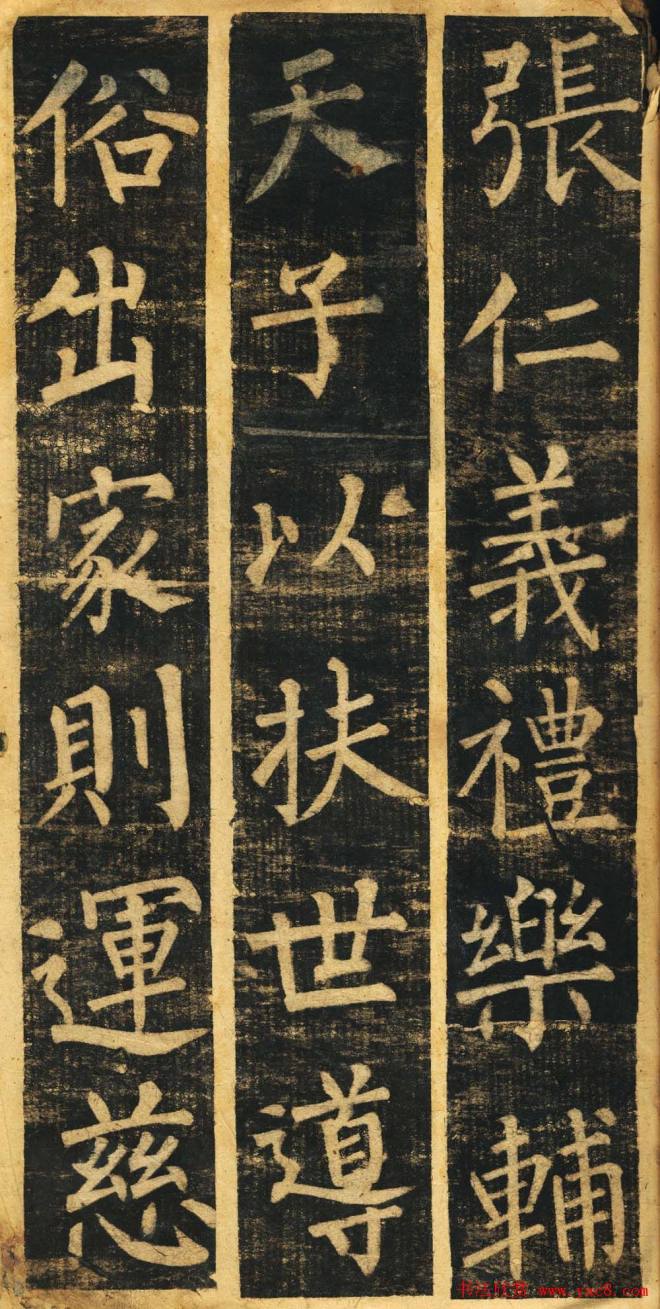 張仁義禮樂輔
天子以扶世導
俗出家則運慈
书法欣赏 www.yac8.com